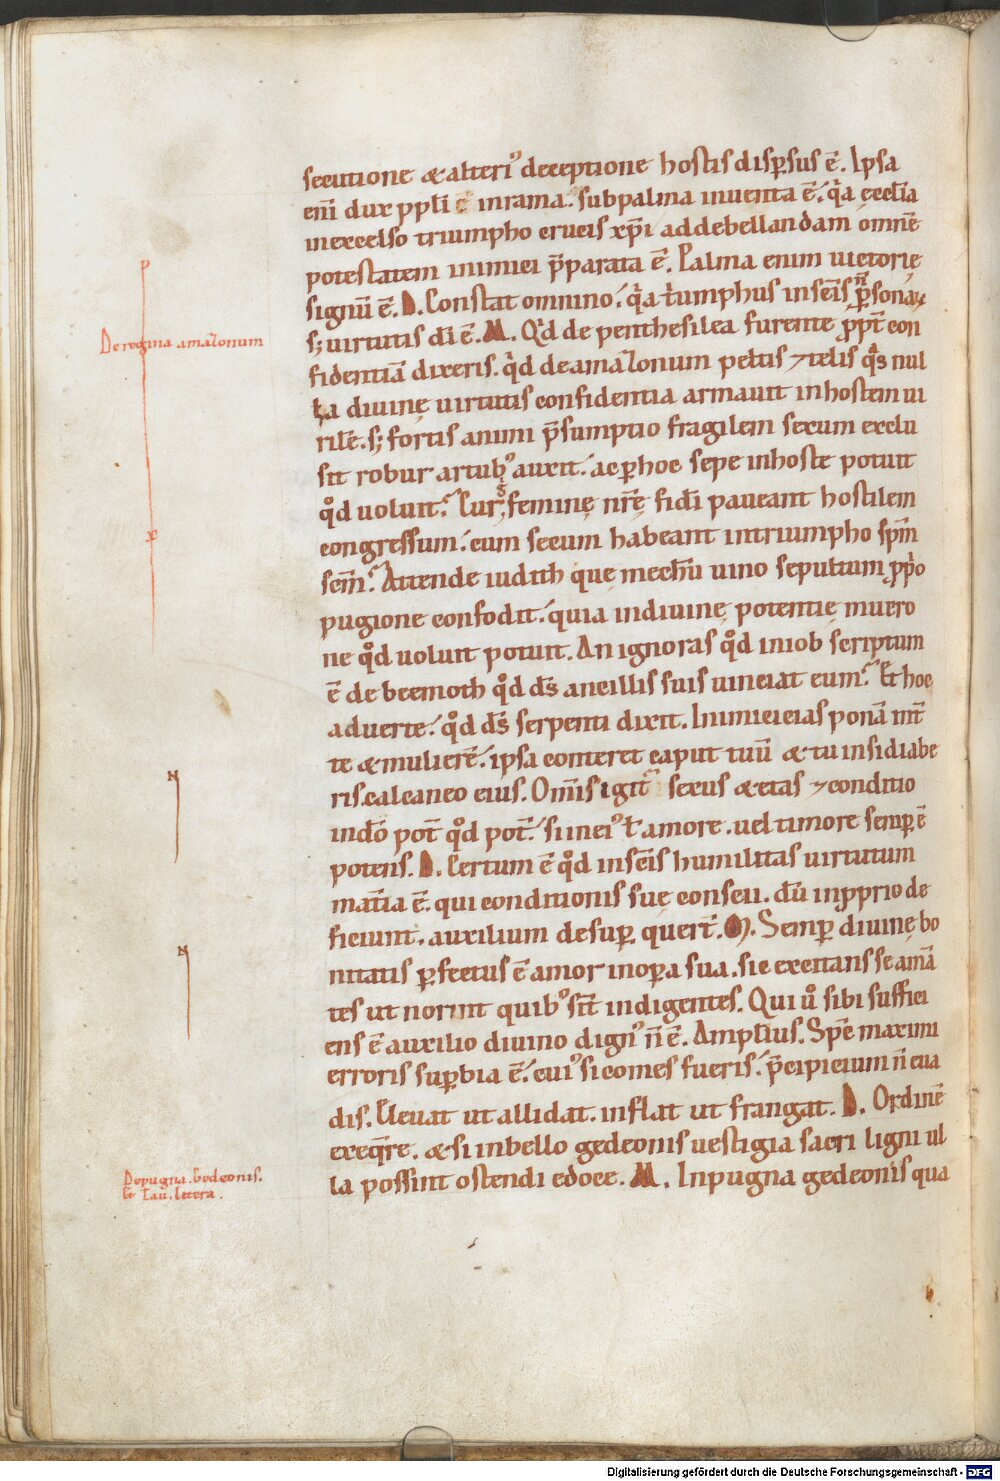 secutione & alteri᾽ deceptione hostis disp̄sus ē. Ipsa
eni dux ppli ē in rama. sub palma inuenta ē. q̄a ęcclia
in excelso triumpho crucis xp̄i ad debellandam omnē
potestatem inimici p̄parata ē. Palma enim uictorię
signū ē. D. Constat omnino. q̄a t̄umphus in scīs p̄sonar̄
s; uirtutis dī ē. M. Qd de penthesilea furente pp̄t con
fidentiā dixeris. q̄d de amaZonum peltis ⁊ telis q̄s nul
la diuinę uirtutis confidentia armauit in hostem ui
rilē. s; fortis animi p̄sumptio fragilem sexum exclu
sit robur artub᾽ auxit. ac p hoc sepe in hoste potuit
qd uoluit. Cur g᷒ feminę nr̄ę fidi paueant hostilem
congressum. cum secum habeant in triumpho spm̄
scm̄. Attende iudith que mechū uino sepultum pp̄o
pugione confodit. quia in diuinę potentię mucro
ne qd uoluit potuit. An ignoras qd in iob scriptum
ē de beemoth qd ds̄ ancillis suis uinciat eum. Et hoc
aduerte. qd ds̄ serpenti dixit. Inimicicias ponā int̄
te & mulierē. ipsa conteret caput tuū & tu insidiabe
ris calcaneo eius. Omīs igit᷒ sexus & etas ⁊ conditio
in dō pot̄ qd pot̄. si in ei᾽ ł amore. uel timore semp ē
potens. D. Certum ē qd in scīs humilitas uirtutum
mat̄ia ē. qui conditionis suę conscii. dū in pprio de
ficiunt. auxilium desup querit̄. M. Semp diuinę bo
nitatis pfectus ē amor in opa sua. sic excitans se amā
tes ut norint quib᾽ sit̄ indigentes. Qui ů sibi suffici
ens ē auxilio diuino dign᾽ n̄ ē. Amplius. Spē maximi
erroris supbia ē. cui᾽ si comes fueris. p̄cipicium n̄ eua
dis. Eleuat ut allidat. inflat ut frangat. D. Ordinē
exeq̄re. & si in bello gedeonis uestigia sacri ligni ul
la possint ostendi edoce. M. In pugna gedeonis qua
De regina amaZonum
De pugna. Gedeonis.
& Tau. letera.
Digitalisierung gefördert durch die Deutsche Forschungsgemeinschaft - DFG